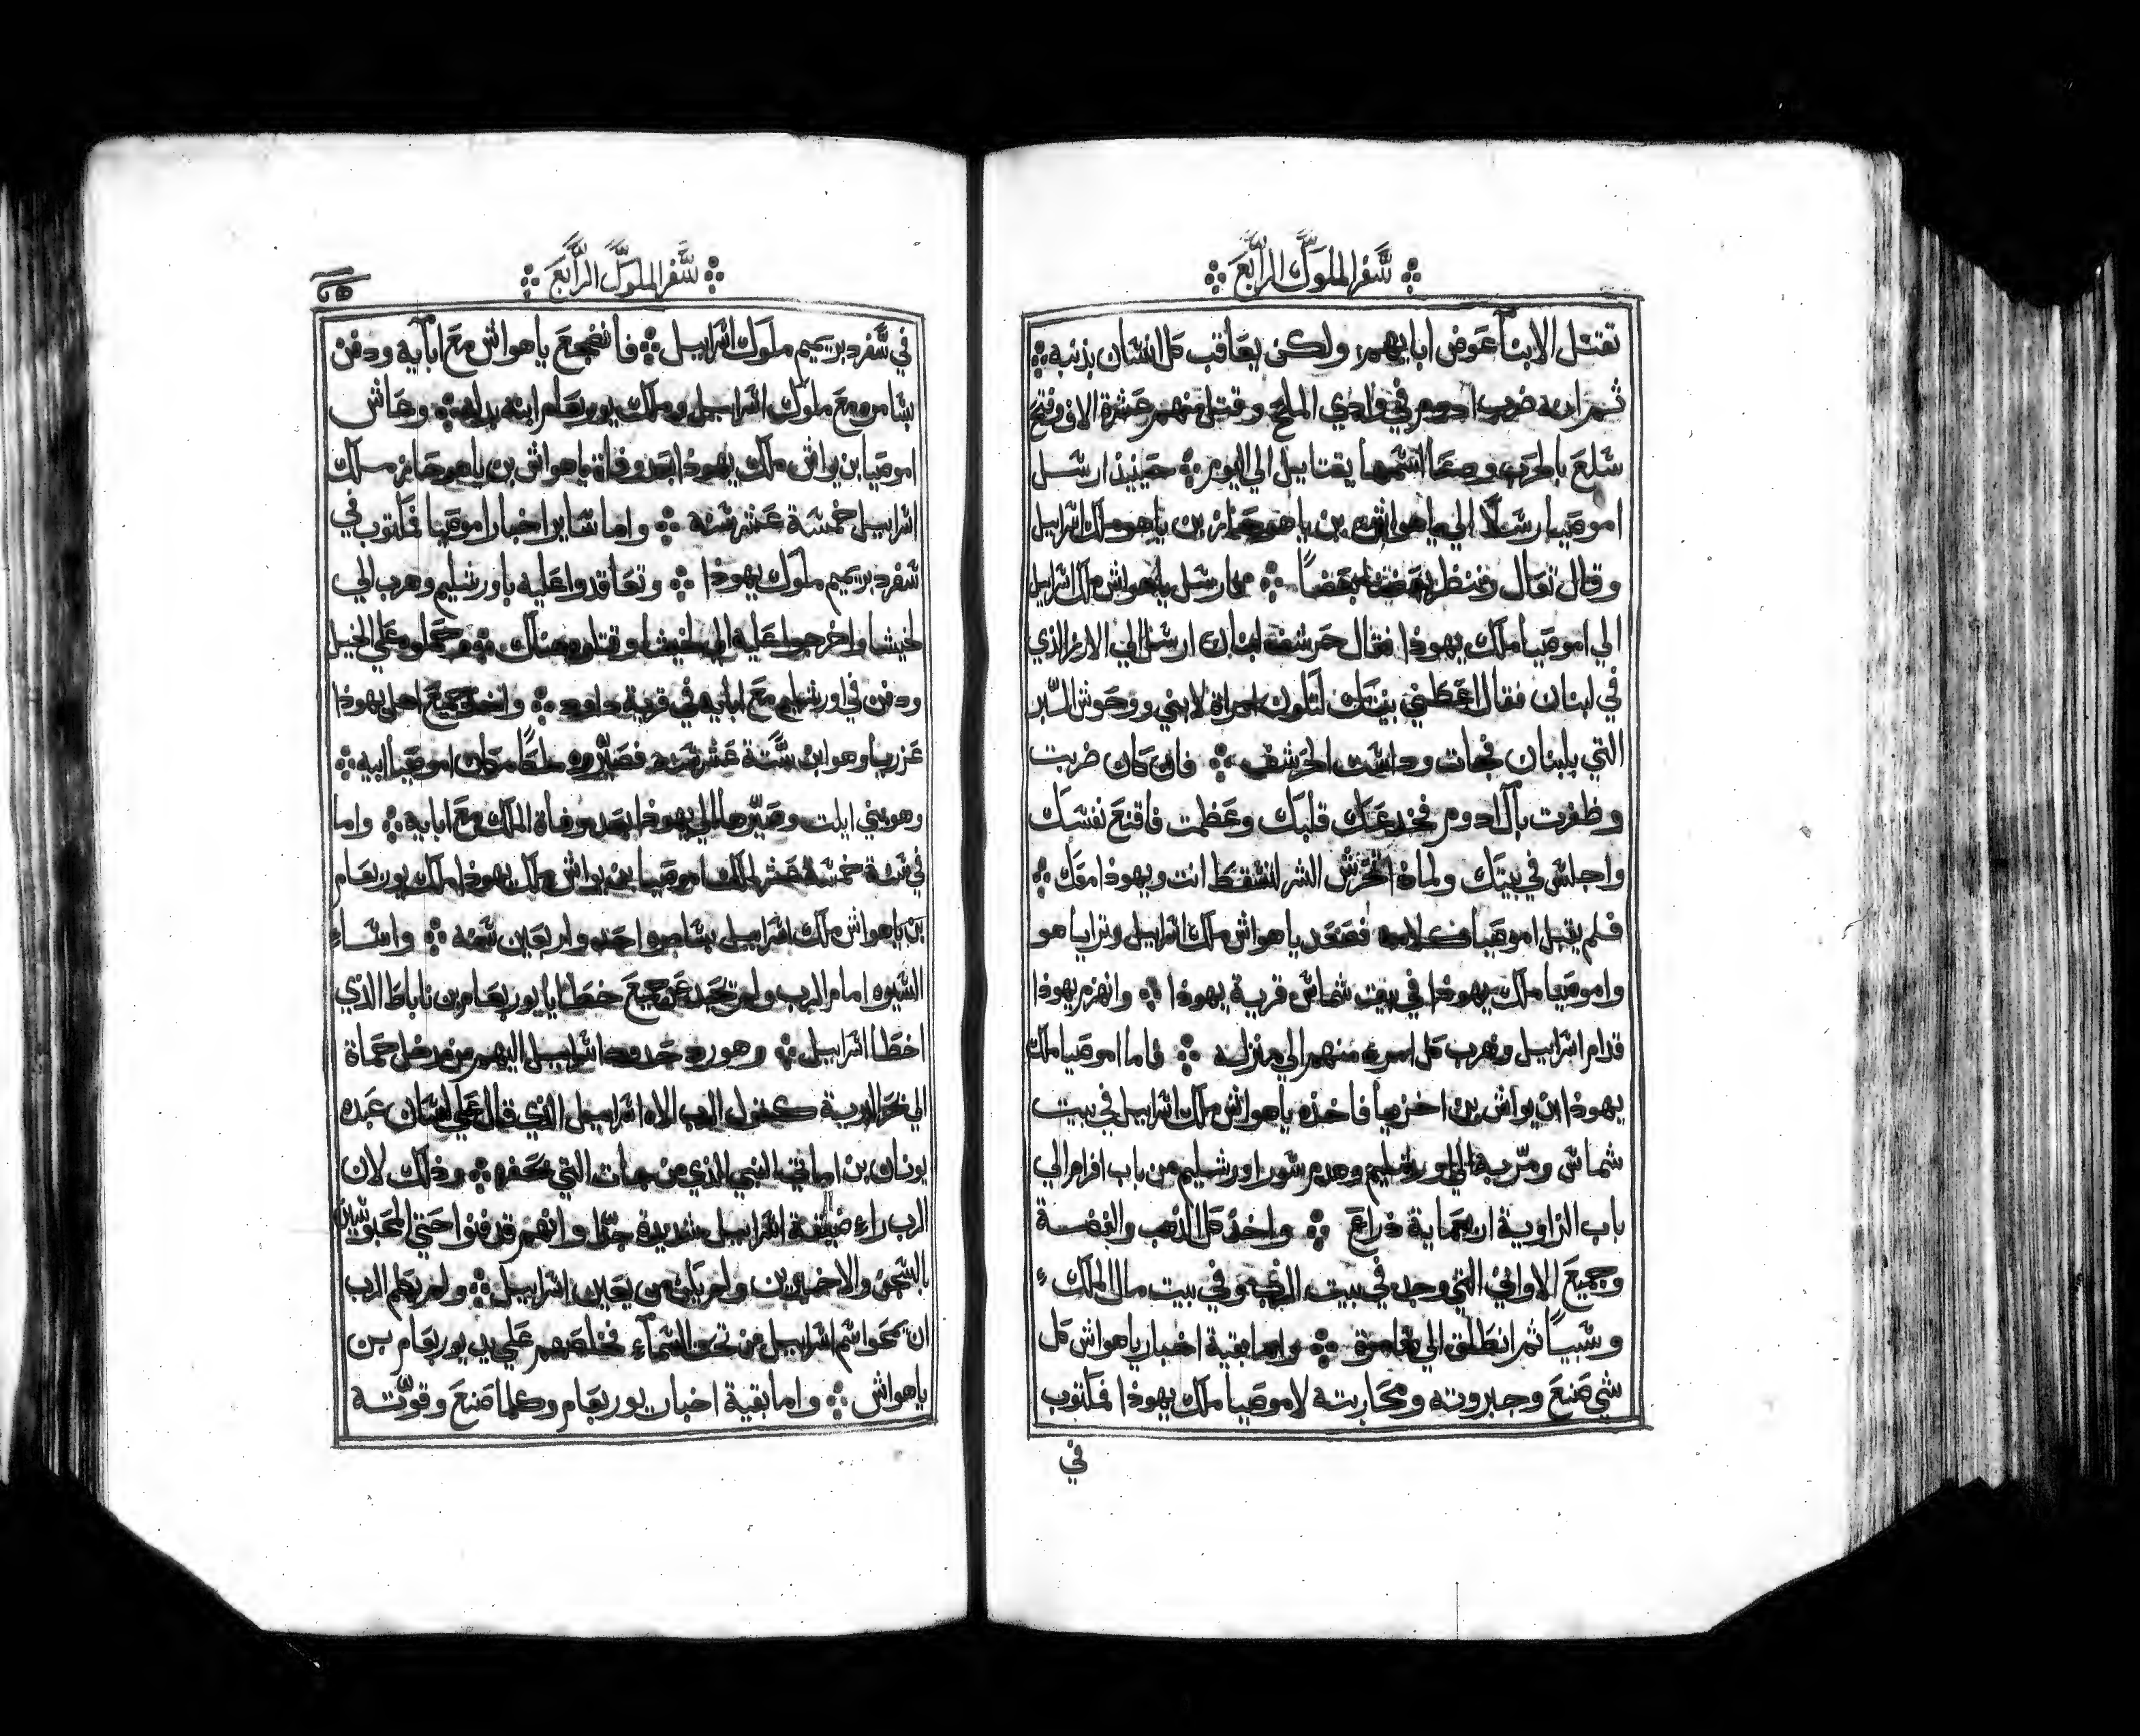 سفر الملوك الرابع
تقتل الابنآ عوض ابايهم ولكن يعاقب كل انسان بذنبه
ثم انه ضرب ادوم في وادي الملح وقتل منهم عشرة الاف وفتح
سلع بالحرب ودعا اسمها يقتاييل الي اليوم حينيذ ارسل
اموصيا رسلًا الي ياهواش بن ياهوحاز بن ياهو ملك اسراييل
وقال تعال ننظر بعضنا بعضًا فارسل ياهواش ملك اسراييل
الي اموصيا ملك يهوذا فقال حرشف لبنان ارسل الي الارز الذي
في لبنان فقال اعطني بنتك لتكون امراة لابني ووحوش البر
التي بلبنان فجات وداست الحرشف فان كان ضربت
وظفرت بآل ادوم فخدعك قلبك وعظمت فاقنع نفسك
واجلس في بيتك ولماذا تحرش الشر لتسقط انت ويهوذا معك
فلم يقبل اموصيا كلامه فصعد ياهواش ملك اسراييل وترايا هو
واموصيا ملك يهوذا في بيت شماس قرية يهوذا وانهزم يهوذا
قدام اسراييل وهرب كل امرء منهم الي منزله فاما اموصيا ملك
يهوذا ابن يواش بن اخزيا فاخذه ياهواش ملك اسراييل في بيت
شماس ومرّ به الي اورشليم وهدم سور اورشليم من باب افرام الي
باب الزاوية اربعماية ذراع واخذ كل الذهب والفضة
وجميع الاواني التي وجد في بيت الرب وفي بيت مال الملك
وسبيًا ثم انطلق الي شامرة واما بقية اخبار ياهواش كل
شي صنع وجبروته ومحاربته لاموصيا ملك يهوذا فمكتوب
في
سفر الملوك الرابع
في سفر دبريميم ملوك اسراييل فانضجع ياهواش مع ابآيه ودفن
بشامره مع ملوك اسراييل وملك يوربعام ابنه بدله وعاش
اموصيا بن يواش ملك يهوذا بعد وفاة ياهواش بن ياهوحاز ملك
اسراييل خمسة عشر سنه واما ساير اخبار اموصيا فمكتوب في
سفر دبريميم ملوك يهوذا وتعاقدوا عليه باورشليم وهرب الي
لخيشا واخرجوا عليه الي لخيشا وقتلوه هناك وحملوه علي الخيل
ودفن في اورشليم مع ابايه في قرية داود واخذ جميع اهل يهوذا
عزريا وهو ابن ستة عشر سنه فصيّروه ملكًا مكان اموصيا ابيه
وهو بني ايلت وصيّرها الي يهوذا بعد وفاة الملك مع ابايه واما
في سنة خمسة عشر لملك اموصيا بن يواش ملك يهوذا ملك يوربعام
بن ياهواش ملك اسراييل بشامره احد واربعين سنه واساء
السيره امام الرب ولم يحد عن جميع خطايا يوربعام بن ناباط الذي
اخطا اسراييل وهو رد حدود اسراييل اليهم من مدخل حماة
الي بحر البرية كقول الرب الاه اسراييل الذي قال علي لسان عبده
يونان بن اماتي النبي الذي من جات التي بحفر وذلك لان
الرب راء ضيقة اسراييل شديدة جدًا وانهم قد فنوا حتي المحبوسين
بالسجن والاخيرين ولم يكن من يعين اسراييل ولم يهم الرب
ان يمحوا اسم اسراييل من تحت السمآء فخلصهم علي يد يوربعام بن
ياهواش واما بقية اخبار يوربعام وكلما صنع وقوّته